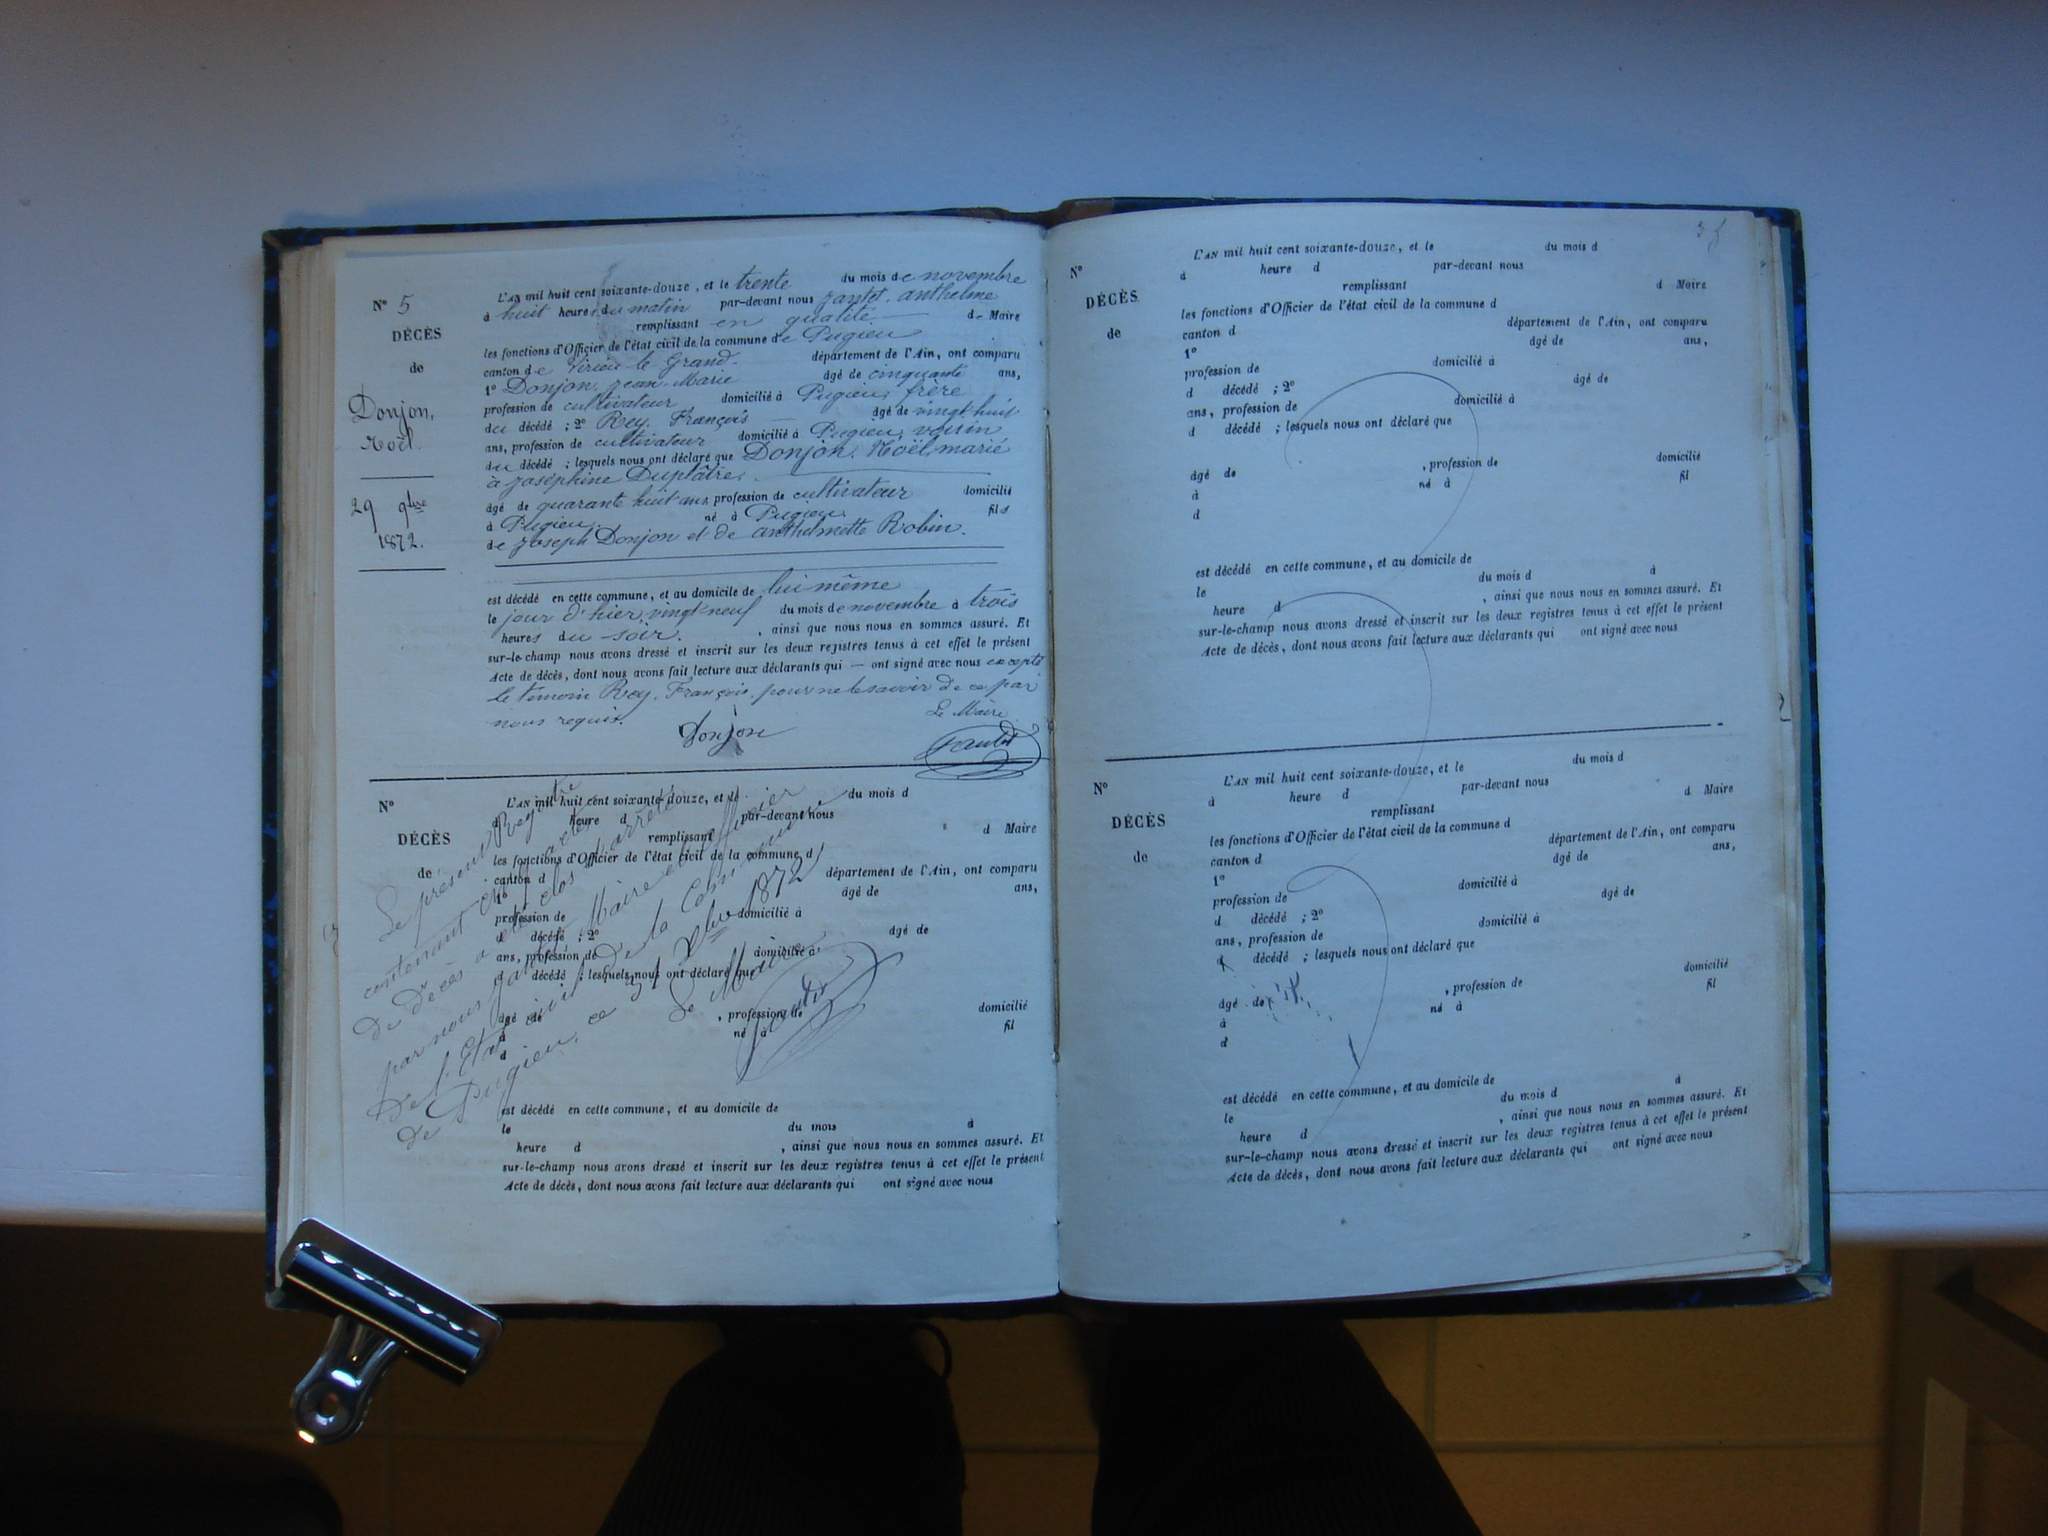 N° 5
DÉCÈS
de
Donjon,
Noël.
29 9bre
1872.
L'AN mil huit cent soixante-douze, et le trente du mois de novembre
à huit heures du matin par-devant nous Jantet, anthelme
remplissant en qualité de Maire
les fonctions d'Officier de l'état civil de la commune de Pugieu
canton de Virieu le Grand. département de l'Ain, ont comparu
1° Donjon, Jean-Marie âgé de cinquante ans,
profession de cultivateur domicilié à Pugieu, frère
du décédé ; 2° Rey, François âgé de vingt huit
ans, profession de cultivateur domicilié à Pugieu, voisin
du décédé ; lesquels nous ont déclaré que Donjon, Noël, marié
à Joséphine Duplâtre,
âgé de quarante huit ans, profession de cultivateur domicilié
à Pugieu, né à Pugieu, fils
de Joseph Donjon et de anthelmette Robin.
est décédé en cette commune, et au domicile de lui même
le jour d'hier, vingt-neuf du mois de novembre à trois
heures du soir. , ainsi que nous nous en sommes assuré. Et
sur-le-champ nous avons dressé et inscrit sur les deux registres tenus à cet effet le présent
Acte de décès, dont nous avons fait lecture aux déclarants qui — ont signé avec nous excepté
le témoin Rey, François, pour ne le savoir de ce par
nous requis.
Le Maire
Donjon
Jantet
N°
DÉCÈS
de
L'AN mil huit cent soixante-douze, et le du mois d
à heure d par-devant nous
remplissant d Maire
les fonctions d'Officier de l'état civil de la commune d
canton d département de l'Ain, ont comparu
1° âgé de ans,
profession de domicilié à
d décédé ; 2° âgé de
ans, profession de domicilié à
d décédé ; lesquels nous ont déclaré que
âgé de , profession de domicilié
à né à fil
d
est décédé en cette commune, et au domicile de
le du mois à
heure d , ainsi que nous nous en sommes assuré. Et
sur-le-champ nous avons dressé et inscrit sur les deux registres tenus à cet effet le présent
Acte de décès, dont nous avons fait lecture aux déclarants qui ont signé avec nous
Le présent Registre
contenant cinq actes
de Décès a été clos et arrêté
par nous Jantet Maire et officier
de l'Etat civil de la Commune
de Pugieu, ce 31 Xbre 1872
Le Maire
Jantet
35
N°
DÉCÈS
de
L'AN mil huit cent soixante-douze, et le du mois d
à heure d par-devant nous
remplissant d Maire
les fonctions d'Officier de l'état civil de la commune d
canton d département de l'Ain, ont comparu
1° âgé de ans,
profession de domicilié à
d décédé ; 2° âgé de
ans, profession de domicilié à
d décédé ; lesquels nous ont déclaré que
âgé de , profession de domicilié
à né à fil
d
est décédé en cette commune, et au domicile de
le du mois d à
heure d , ainsi que nous nous en sommes assuré. Et
sur-le-champ nous avons dressé et inscrit sur les deux registres tenus à cet effet le présent
Acte de décès, dont nous avons fait lecture aux déclarants qui ont signé avec nous
N°
DÉCÈS
de
L'AN mil huit cent soixante-douze, et le du mois d
à heure d par-devant nous
remplissant d Maire
les fonctions d'Officier de l'état civil de la commune d
canton d département de l'Ain, ont comparu
1° âgé de ans,
profession de domicilié à
d décédé ; 2° âgé de
ans, profession de domicilié à
d décédé ; lesquels nous ont déclaré que
âgé de , profession de domicilié
à né à fil
d
est décédé en cette commune, et au domicile de
le du mois d à
heure d , ainsi que nous nous en sommes assuré. Et
sur-le-champ nous avons dressé et inscrit sur les deux registres tenus à cet effet le présent
Acte de décès, dont nous avons fait lecture aux déclarants qui ont signé avec nous